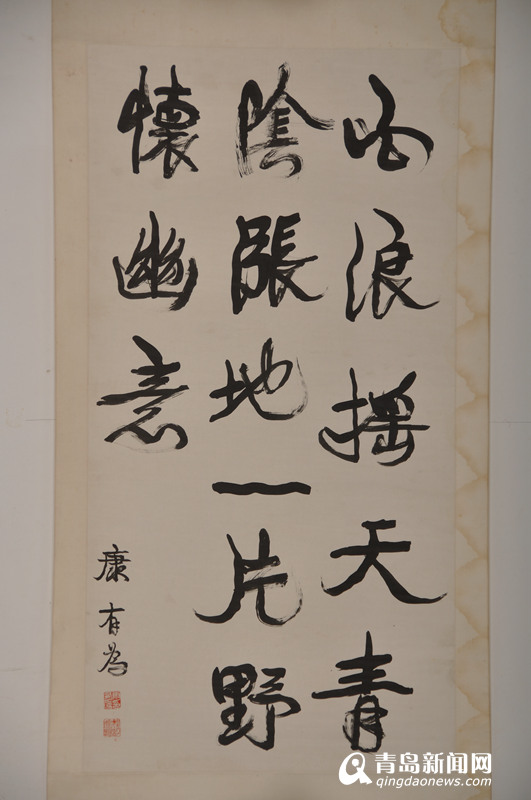 白浪摇天青
陰張地一片野
懷幽意
康有為
青岛新闻网
qingdaonews.com